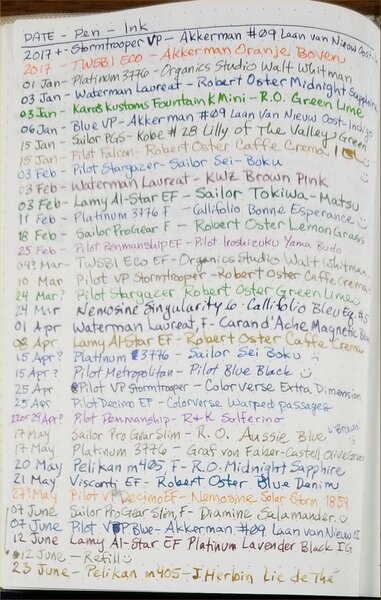 DATE - Pen - Ink
2017+ - Stormtrooper VP - Akkerman #09 Laan van Nieuw Oost-
2017 - TWSBI ECO - Akkerman Oranje Boven
01 Jan - Platinum 3776 - Organics Studio Walt Whitman
03 Jan - Waterman Laureat - Robert Oster Midnight Sapphire
03 Jan - Karas Kustoms Fountain K Mini - R.O. Green Lime
06 Jan - Blue VP - Akkerman #09 Laan van Nieuw Oost-Indig
15 Jan - Sailor PGS - Kobe #28 Lilly of the Valley Green
15 Jan - Pilot Falcon - Robert Oster Caffe Crema
03 Feb - Pilot Stargazer - Sailor Sei-Boku
03 Feb - Waterman Laureat - KWZ Brown Pink
03 Feb - Lamy Al-Star EF - Sailor Tokiwa-Matsu
11 Feb - Platinum 3776 F - Callifolio Bonne Esperance
18 Feb - Sailor ProGear F - Robert Oster Lemon Grass
25 Feb - Pilot Penmanship EF - Pilot Iroshizuku Yama Budo
04? Mar - TWSBI ECO EF - Organics Studio Walt Whitman
10 Mar - Pilot VP Stormtrooper - Robert Oster Caffe Crema
24 Mar? - Pilot Stargazer Robert Oster Green Lime
24 Mar - Nemosine Singularity 6 - Callifolio Bleu Eq. #5
01 Apr - Waterman Laureat, F - Carand'Ache Magnetic Blue
08 Apr - Lamy Al-Star EF - Robert Oster Caffe Crema
15 Apr? - Platinum 3776 - Sailor Sei Boku :)
15 Apr? - Pilot Metropolitan - Pilot Blue Black
25 Apr - Pilot VP Stormtrooper - Colorverse Extra Dimension
25 Apr - Pilot Decimo EF - Colorverse Warped passages
22 or 29 Apr? - Pilot Penmanship - R+K Solferino
17 May - Sailor Pro Gear Slim - R.O. Aussie Blue Brown
17 May - Platinum 3776 - Graf von Faber-Castell Olive Green
20 May - Pelikan m405, F - R.O. Midnight Sapphire
21 May - Visconti EF - Robert Oster Blue Denim
27? May - Pilot VP Decimo EF - Nemosine Solar Storm 1859
07 June - Sailor ProGear Slim, F - Diamine Salamander
07 June - Pilot VP Blue - Akkerman #09 Laan van Nieuw OI
12 June - Lamy Al-Star EF Platinum Lavender Black IG
12 June - Refill :)
23 June - Pelikan m405 - J. Herbin Lie de Thé